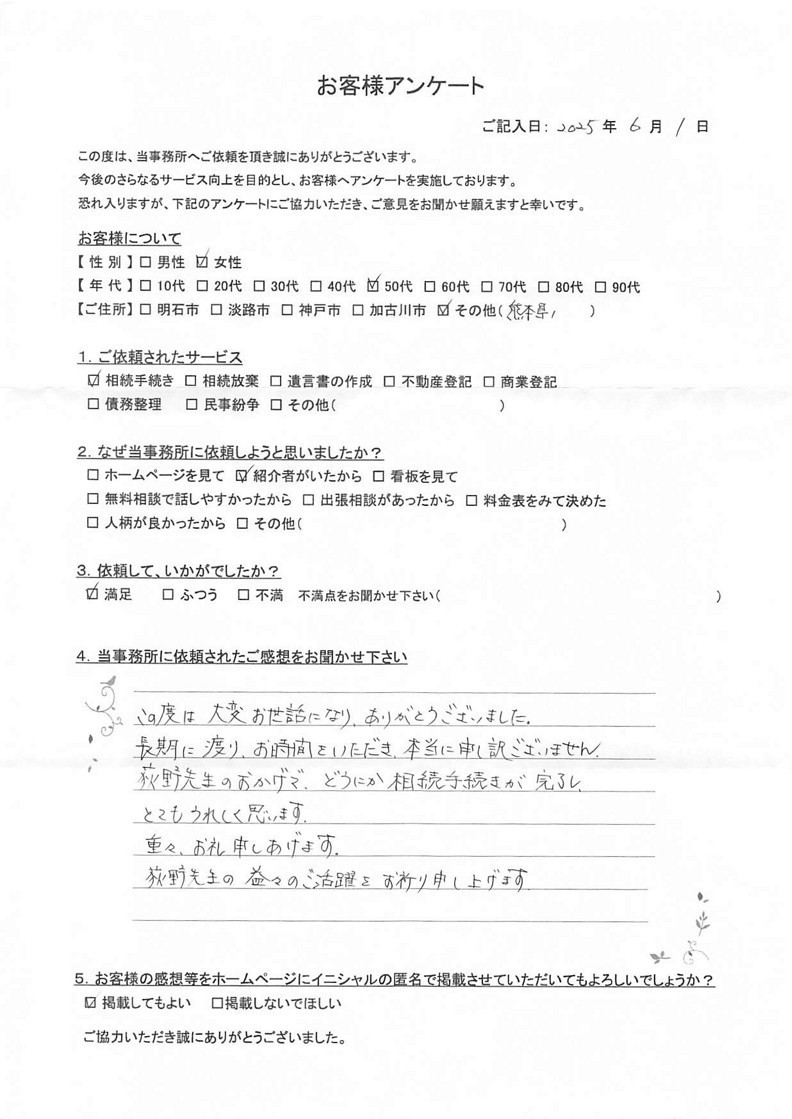 お客様アンケート
ご記入日: 2025 年 6 月 1 日
この度は、当事務所へご依頼を頂き誠にありがとうございます。
今後のさらなるサービス向上を目的とし、お客様へアンケートを実施しております。
恐れ入りますが、下記のアンケートにご協力いただき、ご意見をお聞かせ願えますと幸いです。
お客様について
【 性 別 】 □ 男性 ☑ 女性
【 年 代 】 □ 10代 □ 20代 □ 30代 □ 40代 ☑ 50代 □ 60代 □ 70代 □ 80代 □ 90代
【ご住所】 □ 明石市 □ 淡路市 □ 神戸市 □ 加古川市 ☑ その他( 熊本県 )
1. ご依頼されたサービス
☑ 相続手続き □ 相続放棄 □ 遺言書の作成 □ 不動産登記 □ 商業登記
□ 債務整理 □ 民事紛争 □ その他( )
2. なぜ当事務所に依頼しようと思いましたか?
□ ホームページを見て ☑ 紹介者がいたから □ 看板を見て
□ 無料相談で話しやすかったから □ 出張相談があったから □ 料金表をみて決めた
□ 人柄が良かったから □ その他( )
3. 依頼して、いかがでしたか?
☑ 満足 □ ふつう □ 不満 不満点をお聞かせ下さい( )
4. 当事務所に依頼されたご感想をお聞かせ下さい
この度は 大変 お世話になり、ありがとうございました。
長期に 渡り、お時間をいただき、本当に申し訳ございません。
荻野先生のおかげで、どうにか 相続手続きが 完了し、
とてもうれしく思います。
重々、お礼申しあげます。
荻野先生の 益々のご活躍を お祈り申し上げます。
5. お客様の感想等をホームページにイニシャルの匿名で掲載させていただいてもよろしいでしょうか?
☑ 掲載してもよい □掲載しないでほしい
ご協力いただき誠にありがとうございました。